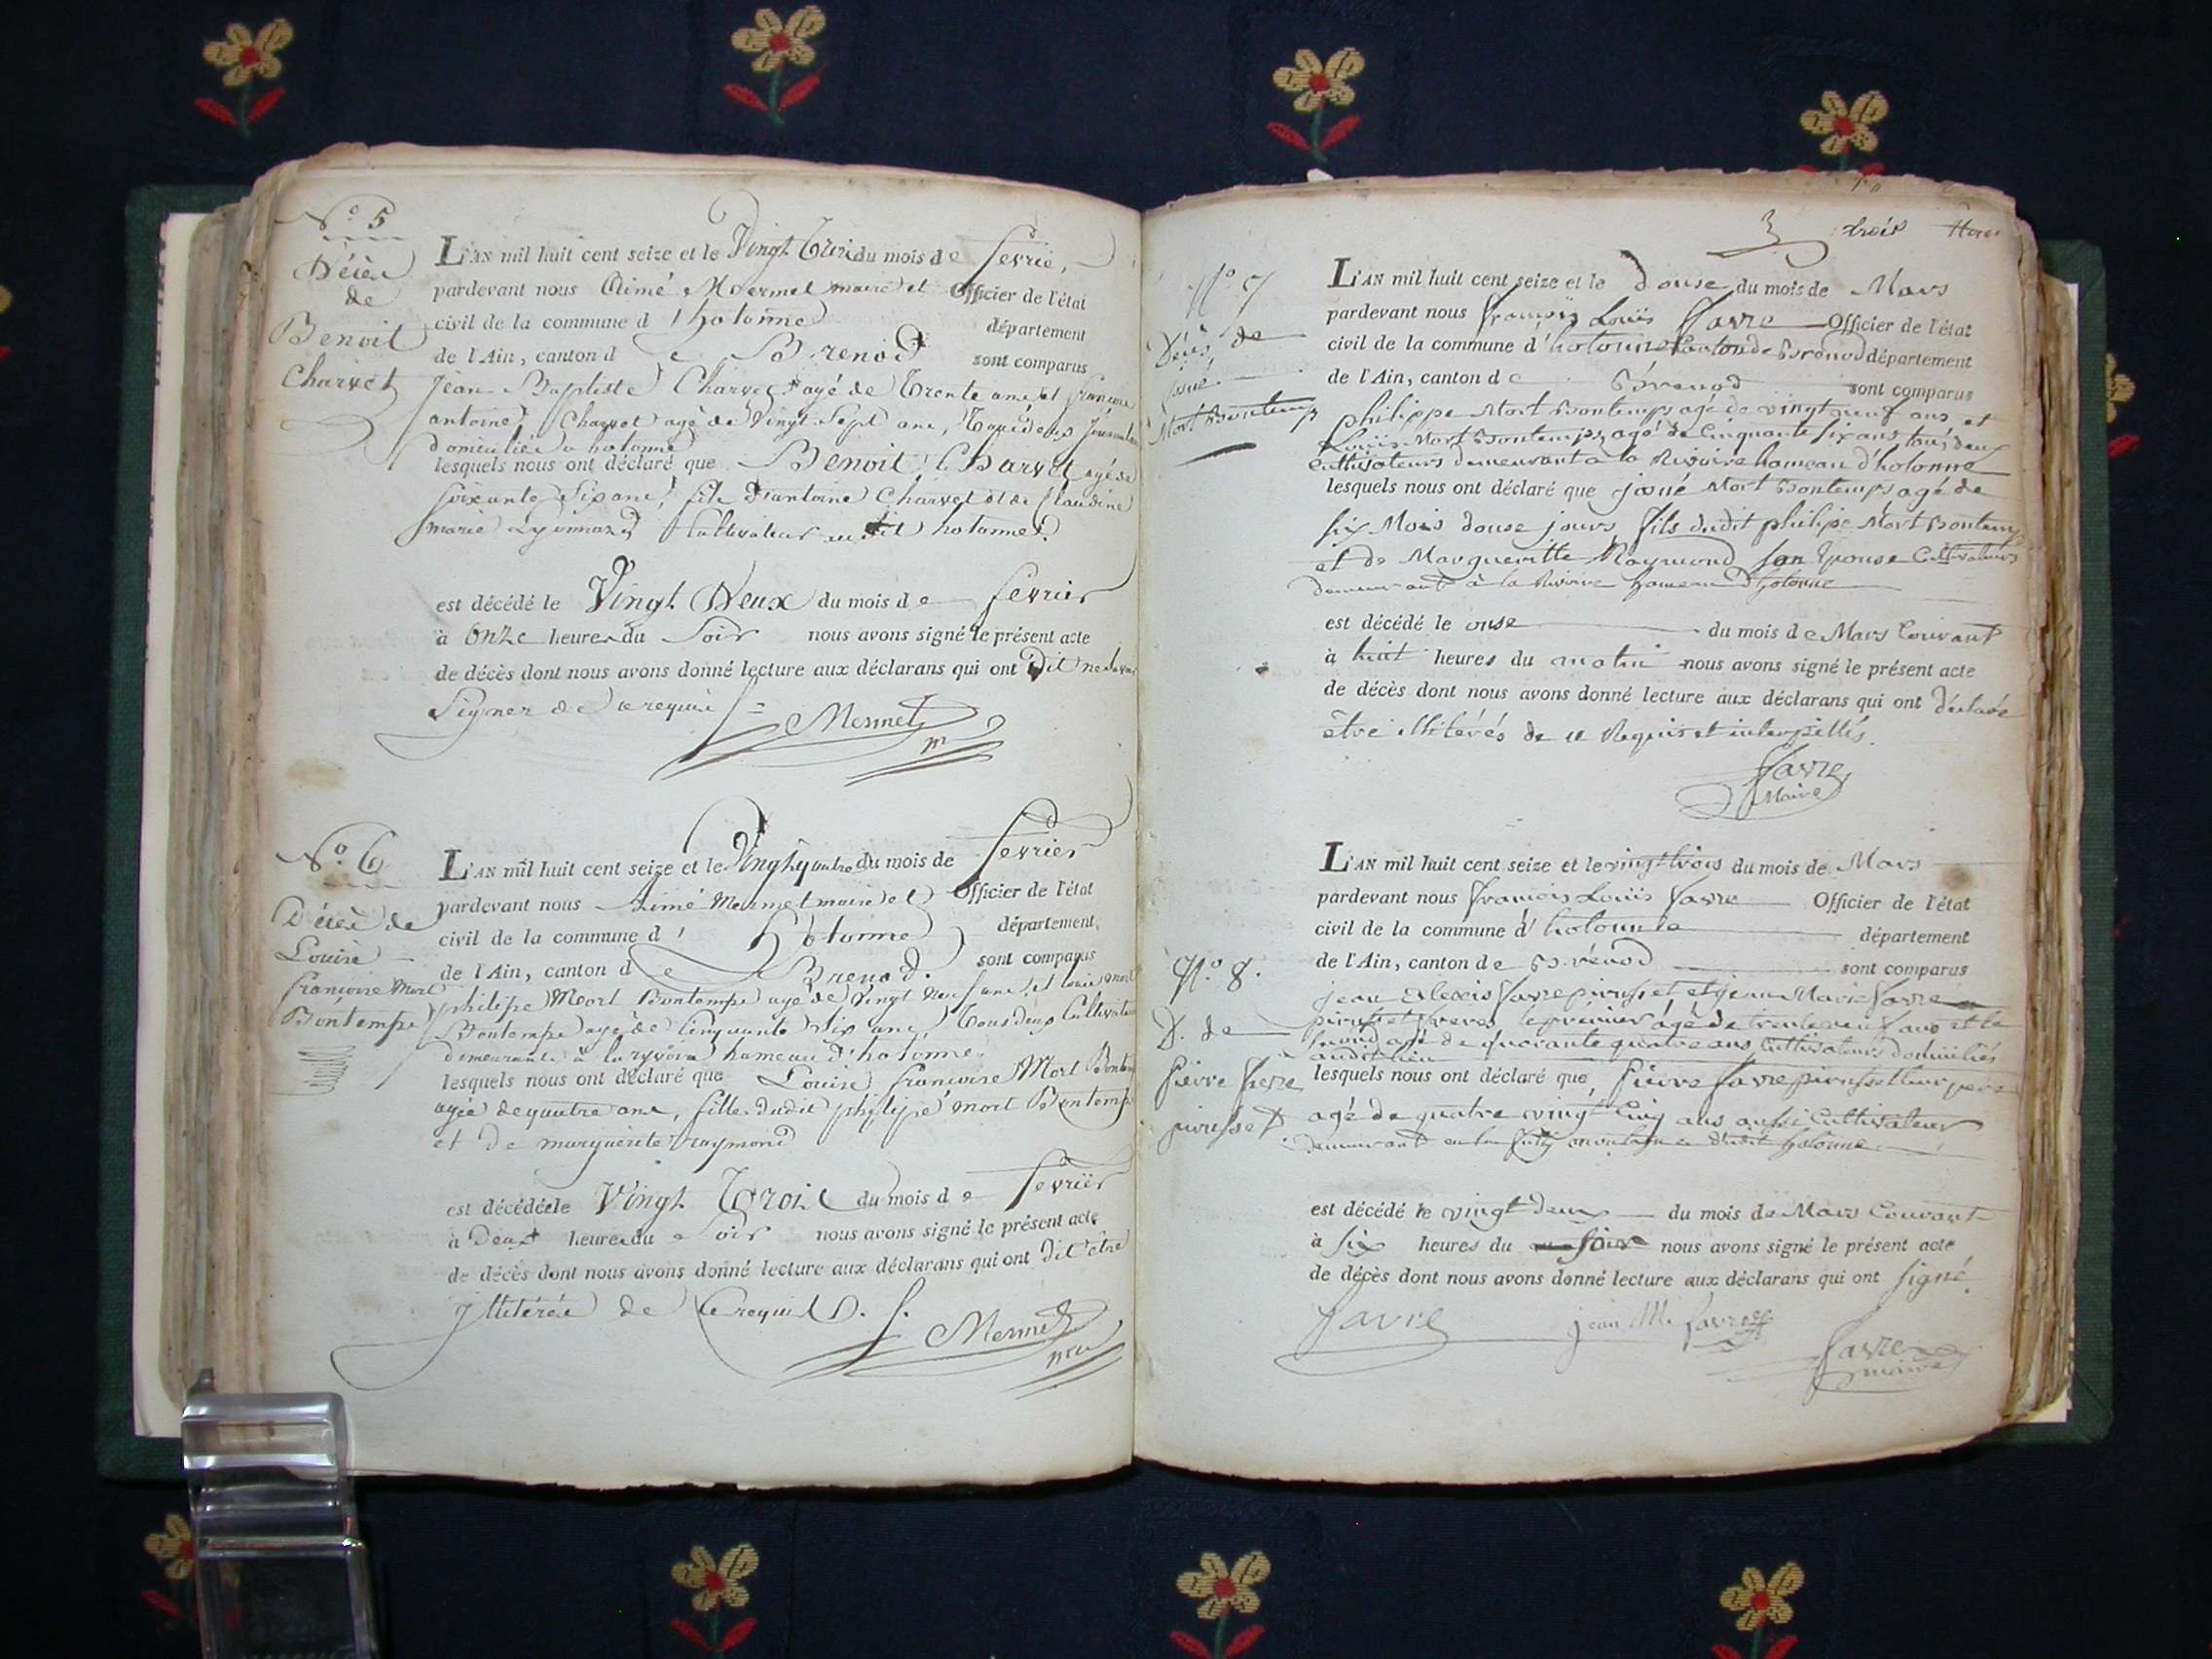 N.° 5
Décès
de
Benoit
Charvet
L'AN mil huit cent seize et le Vingt Trois du mois de fevrier
pardevant nous Aimé Mermet maire et Officier de l'état
civil de la commune d'hotonne département
de l'Ain, canton de Brenod sont comparus
Jean Baptiste Charvet agé de Trente ans et francois
antoine Charvet agé de Vingt Sept ans, Tous deux
domiciliés a hotonne
lesquels nous ont déclaré que Benoit Charvet agé de
soixante Six ans, fils d'antoine Charvet et de Claudine
marie Lyonnard Cultivateur audit hotonne
est décédé le Vingt Deux du mois de fevrier
à Onze heures du Soir nous avons signé le présent acte
de décès dont nous avons donné lecture aux déclarans qui ont Dit ne savoir
Signer de ce requis
Mermet
m
N.° 6
Décès de
Louise
francoise Mort
Bontemps
L'AN mil huit cent seize et le Vingt quatre du mois de fevrier
pardevant nous Aimé Mermet maire et Officier de l'état
civil de la commune d'hotonne département
de l'Ain, canton de Brenod. sont comparus
philipe Mort Bontemps agé de Vingt neuf ans, et louis mort
Bontemps agé de Cinquante Six ans, Tous deux Cultivateurs
demeurants à la hameau d'hotonne
lesquels nous ont déclaré que Louise francoise Mort Bontemps
agée de quatre ans, fille dudit philipe mort Bontemps
et de marguerite raymond
est décédée le Vingt Trois du mois de fevrier
à Deux heures du Soir nous avons signé le présent acte
de décès dont nous avons donné lecture aux déclarans qui ont dit être
illitérés de ce requis
Mermet
3 trois
N.° 7
Décès de
Josué
Mort Bontemps
L'AN mil huit cent seize et le Douse du mois de Mars
pardevant nous François Louis Favre Officier de l'état
civil de la commune d'hotonne Canton de Brenod département
de l'Ain, canton de Brenod sont comparus
philippe Mort Bontemps agé de vingt neuf ans et
Louis Mort Bontemps agé de Cinquante six ans tous deux
Cultivateurs demeurant a la Rivoire hameau d'hotonne
lesquels nous ont déclaré que Josué Mort Bontemps agé de
six Mois douse jours fils dudit philipe Mort Bontemps
et de Margueritte Raymond son Epouse Cultivateurs
demeurant à la Rivoire hameau d'hotonne
est décédé le onse du mois de Mars Courant
à huit heures du matin nous avons signé le présent acte
de décès dont nous avons donné lecture aux déclarans qui ont déclaré
être illitérés de ce Requis et interpellés.
Favre
Maire
N.° 8.
D. de
Pierre Favre
pirusset
L'AN mil huit cent seize et le vingt trois du mois de Mars
pardevant nous François Louis Favre Officier de l'état
civil de la commune d'hotonne département
de l'Ain, canton de Brénod sont comparus
jean Alexis Favre pirusset et jean Marie Favre
pirusset freres le premier agé de trente neuf ans et le
second agé de quarante quatre ans Cultivateurs domiciliés
audit lieu
lesquels nous ont déclaré que Pierre Favre pirusset leur pere
agé de quatre vingt Cinq ans aussi Cultivateur
demeurant hotonne
est décédé le vingt deux du mois de Mars Courant
à six heures du soir nous avons signé le présent acte
de décès dont nous avons donné lecture aux déclarans qui ont signé.
Favre jean M. favre
Favre
maire